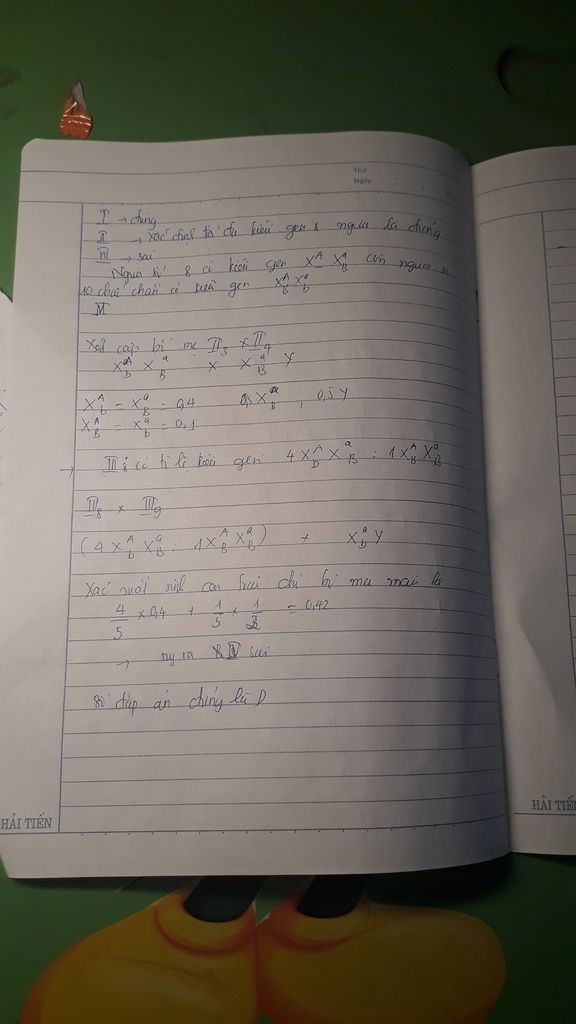 Thứ
Ngày
I → đúng
II → xác định tối đa kiểu gen 8 người là đúng
III → sai
Người số 8 có kiểu gen X^A_ X^a_B còn người số
10 chắc chắn có kiểu gen X^A_B X^a_b
IV
Xét cặp bố mẹ II3 x II4
X^A_b X^a_B x X^a_B Y
X^A_b = X^a_B = 0,4 0,5 X^a_B , 0,5 Y
X^A_B = X^a_b = 0,1
→ III8 có tỉ lệ kiểu gen 4 X^A_b X^a_B : 1 X^A_B X^a_B
III8 x III9
(4 X^A_b X^a_B : 1 X^A_B X^a_B) x X^a_b Y
Xác suất sinh con trai chỉ bị máu là
4/5 x 0,4 + 1/5 x 1/2 = 0,42
→ suy ra IV sai
Số đáp án đúng là D
HẢI TIẾN
HẢI TIẾ